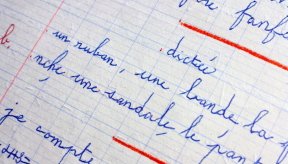 fanfa
. dictée
b. un ruban, une bande la
niche, une sandale, le pan
je compte